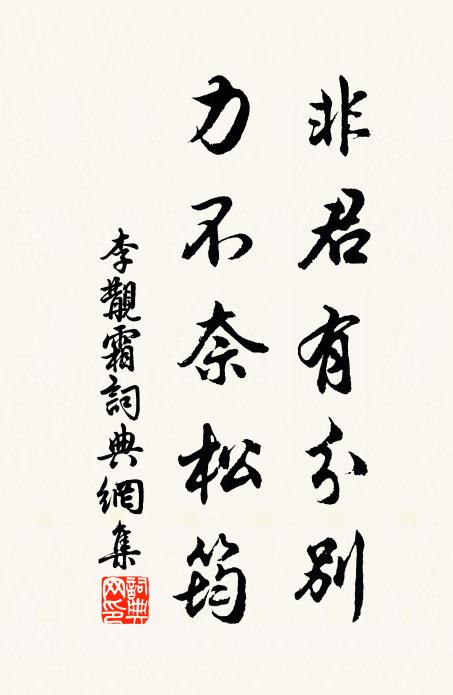 非君有分別
力不奈松筠
李觀霜詞典網集
詞典
网印